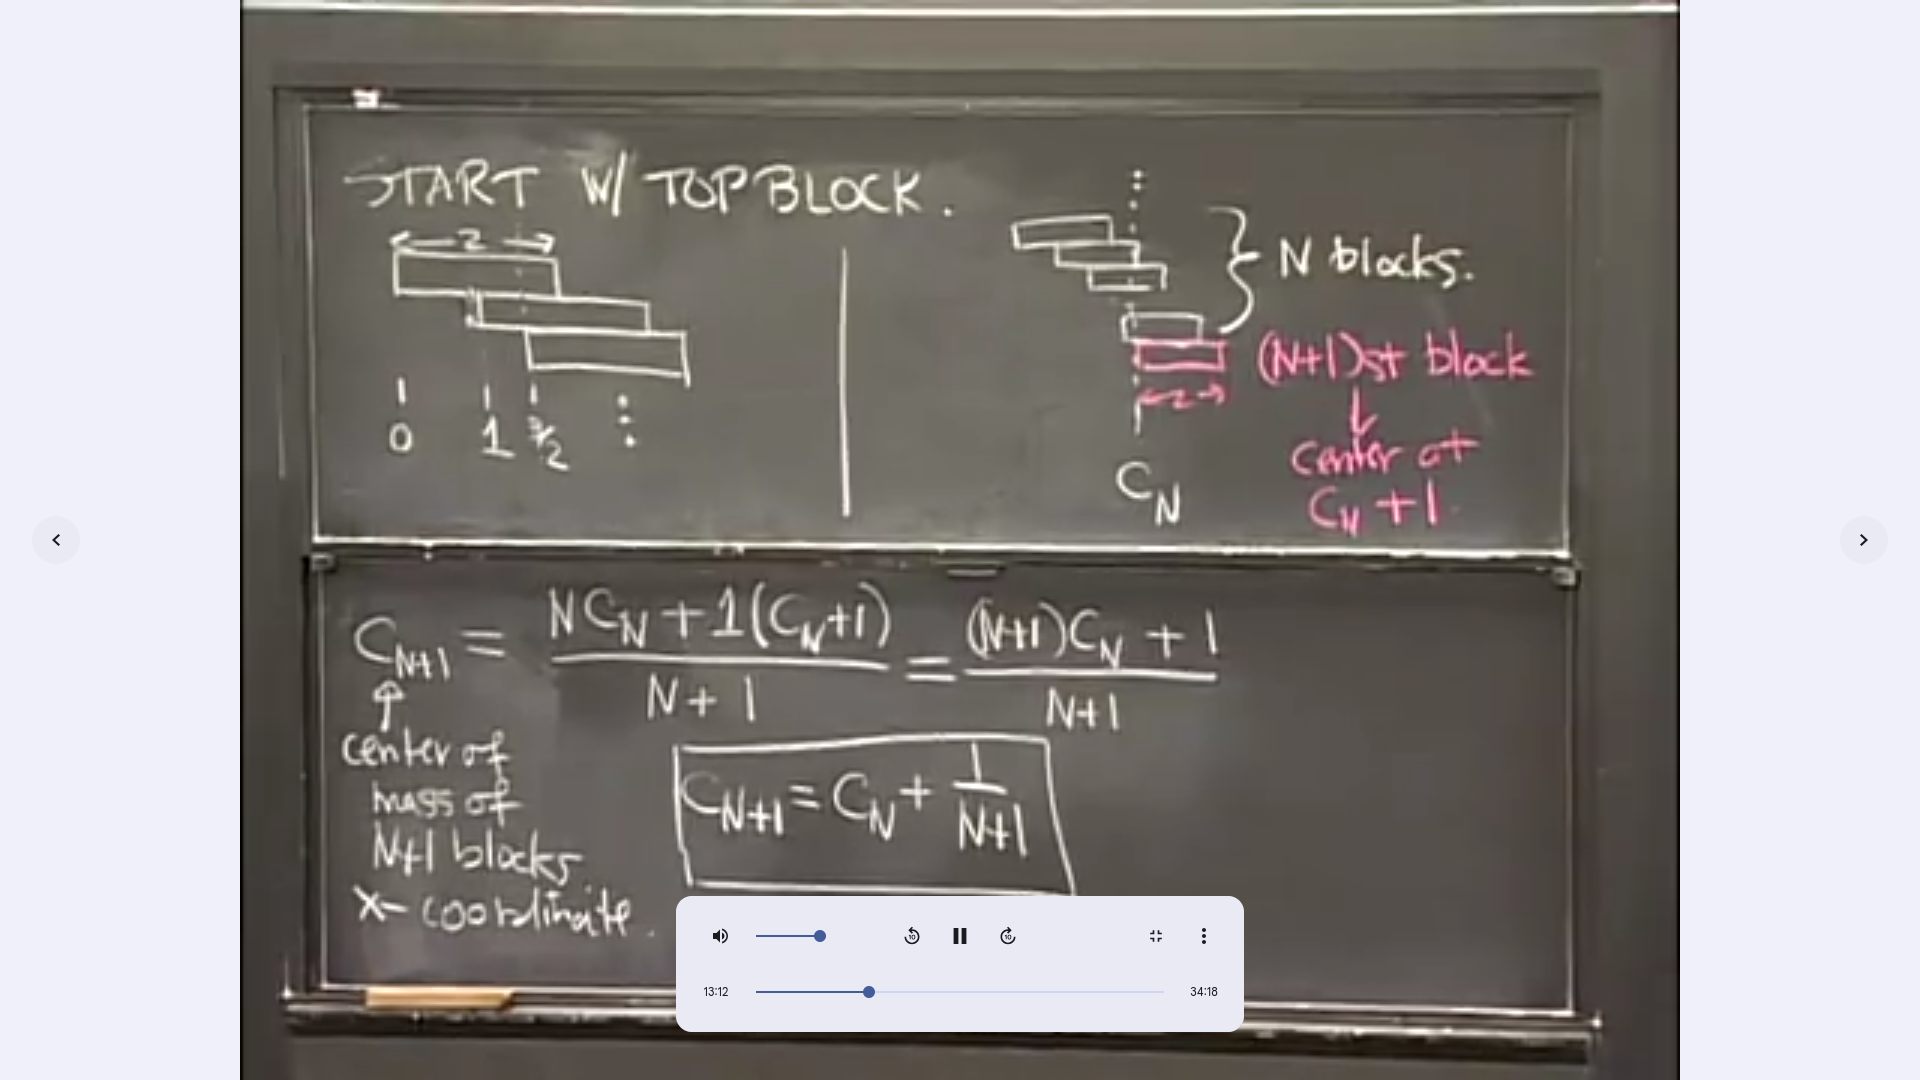 START W/ TOP BLOCK.
2
0 1 3/2
N blocks.
(N+1)st block
2
center at
C_N + 1.
C_N
C_{N+1} = (N C_N + 1(C_N+1)) / (N + 1) = ((N+1)C_N + 1) / (N+1)
center of
mass of
N+1 blocks
x-coordinate.
C_{N+1} = C_N + 1/(N+1)
10 10
13:12 34:18